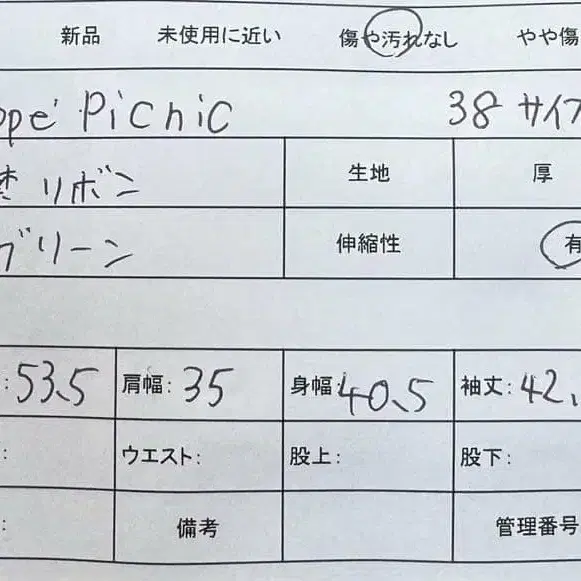 新品 未使用に近い 傷や汚れなし やや傷
ope Picnic 38 サイズ
襟リボン 生地 厚
グリーン 伸縮性 有
: 53.5 肩幅: 35 身幅: 40.5 袖丈: 42.
: ウエスト: 股上: 股下:
: 備考 管理番号